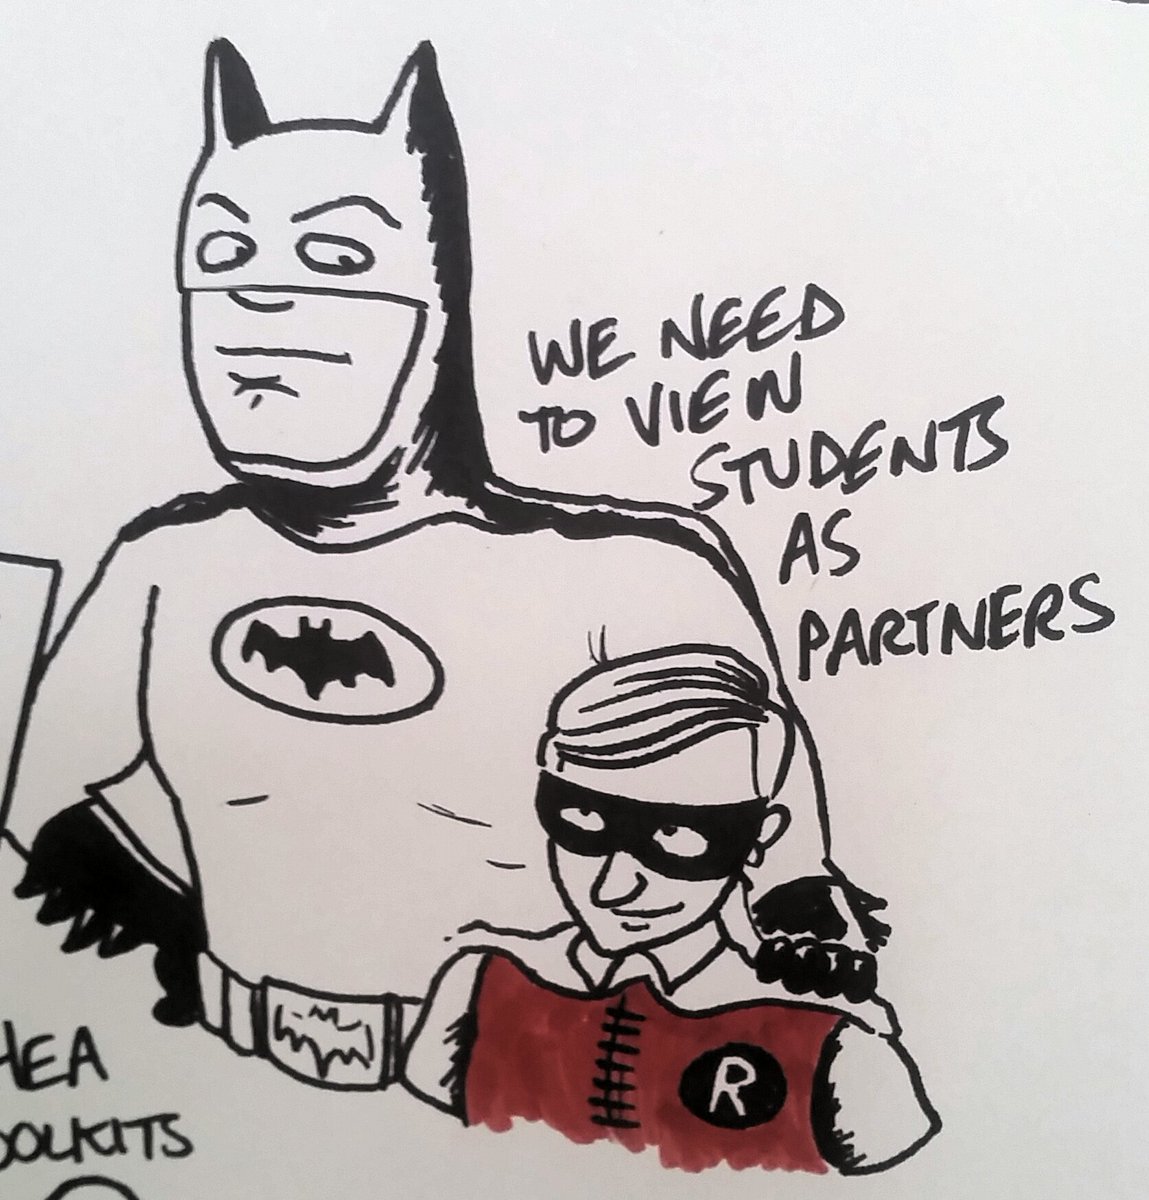 WE NEED
TO VIEW
STUDENTS
AS
PARTNERS
R
HEA
OOLKITS